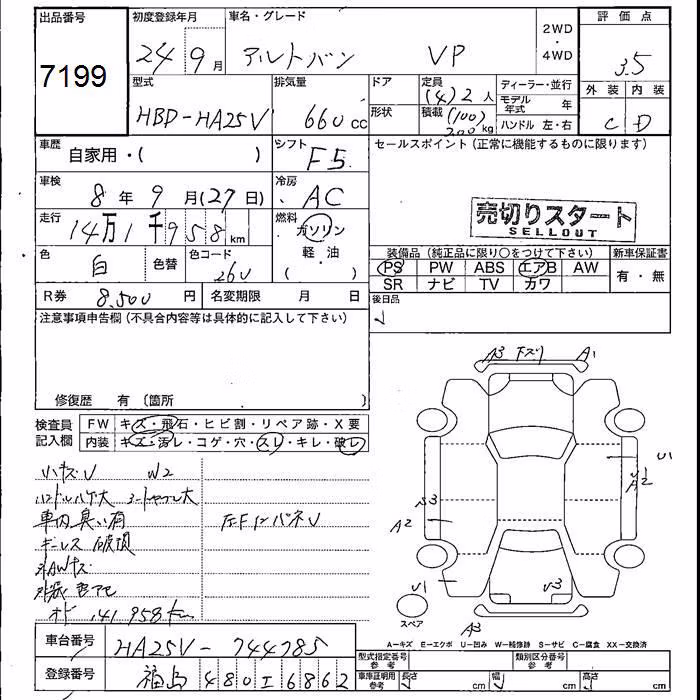 出品番号 7199
初度登録年月 24 9月
車名・グレード アルトバン VP
2WD・4WD
評価点 3.5
外装 内装
C D
型式 HBD-HA25V
排気量 660cc
ドア
形状
定員 (4) 2人
積載 (100) 200kg
ディーラー・並行
モデル年式 年
ハンドル 左・右
車歴 自家用・( )
シフト F5
セールスポイント (正常に機能するものに限ります)
車検 8年9月(27日)
冷房 AC
売切りスタート
SELLOUT
走行 14万1千958km
燃料 ガソリン
軽・油
( )
色 白
色替
色コード 26U
装備品 (純正品に限り○をつけて下さい)
新車保証書
PS PW ABS エアB AW
SR ナビ TV カワ
有・無
R券 8,500円
名変期限 月 日
後日品
注意事項申告欄 (不具合内容等は具体的に記入して下さい)
修復歴 有 〔箇所 〕
検査員記入欄
FW キズ・飛石・ヒビ割・リペア跡・X要
内装 キズ・汚レ・コゲ・穴・スレ・キレ・破レ
小キズU W2
車内臭い有
キーレス
オド 141,958km
A3 Fズリ A1
U1
U2
A2
U3
A2
U1
U3
A3
スペア
A=キズ E=エクボ U=凹み W=補修跡 S=サビ C=腐食 XX=交換済
車台番号 HA25V-744785
登録番号 福島 480 I 6862
型式指定番号 参考
類別区分番号 参考
車庫証明用 参考
長さ
幅
高さ